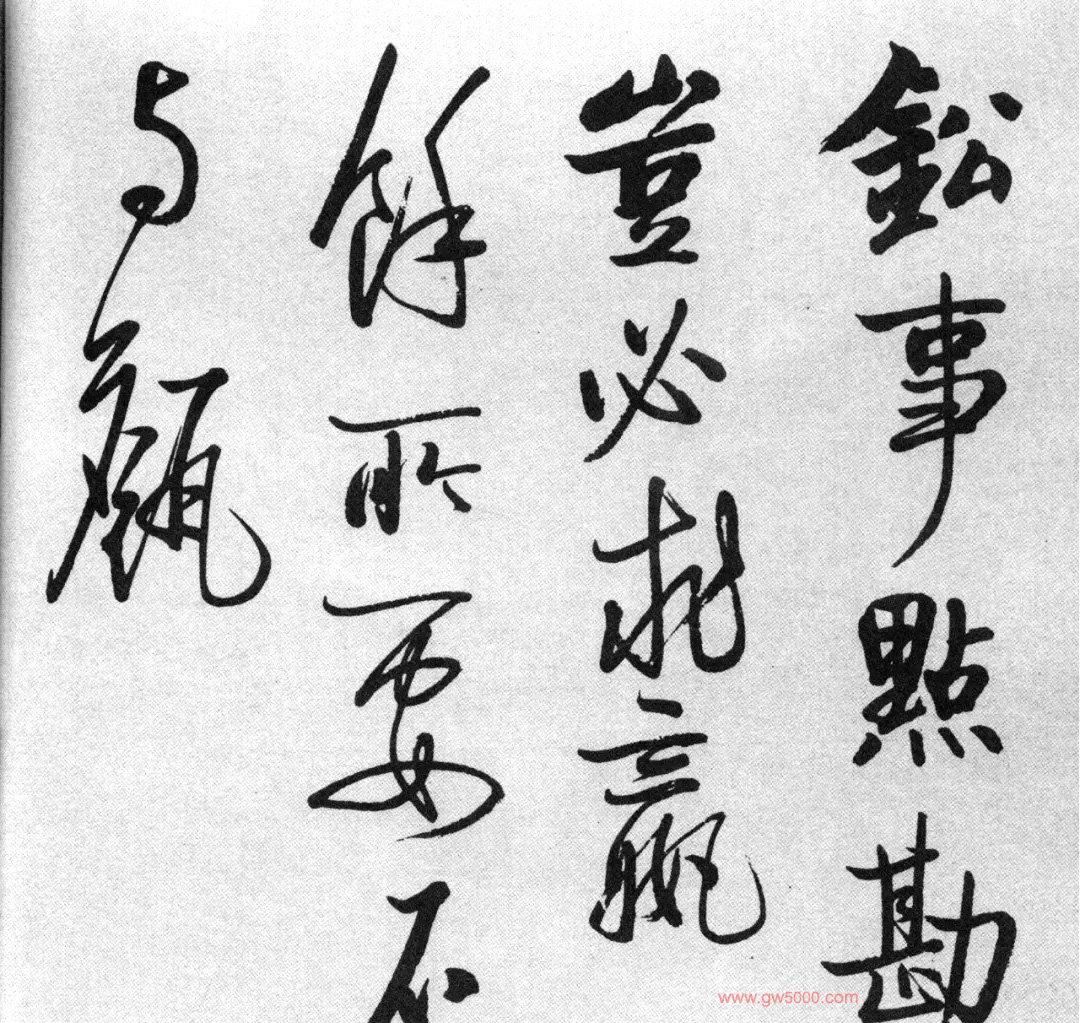 鈆事點勘
豈必贏
餘所要石
与甔
www.gw5000.com